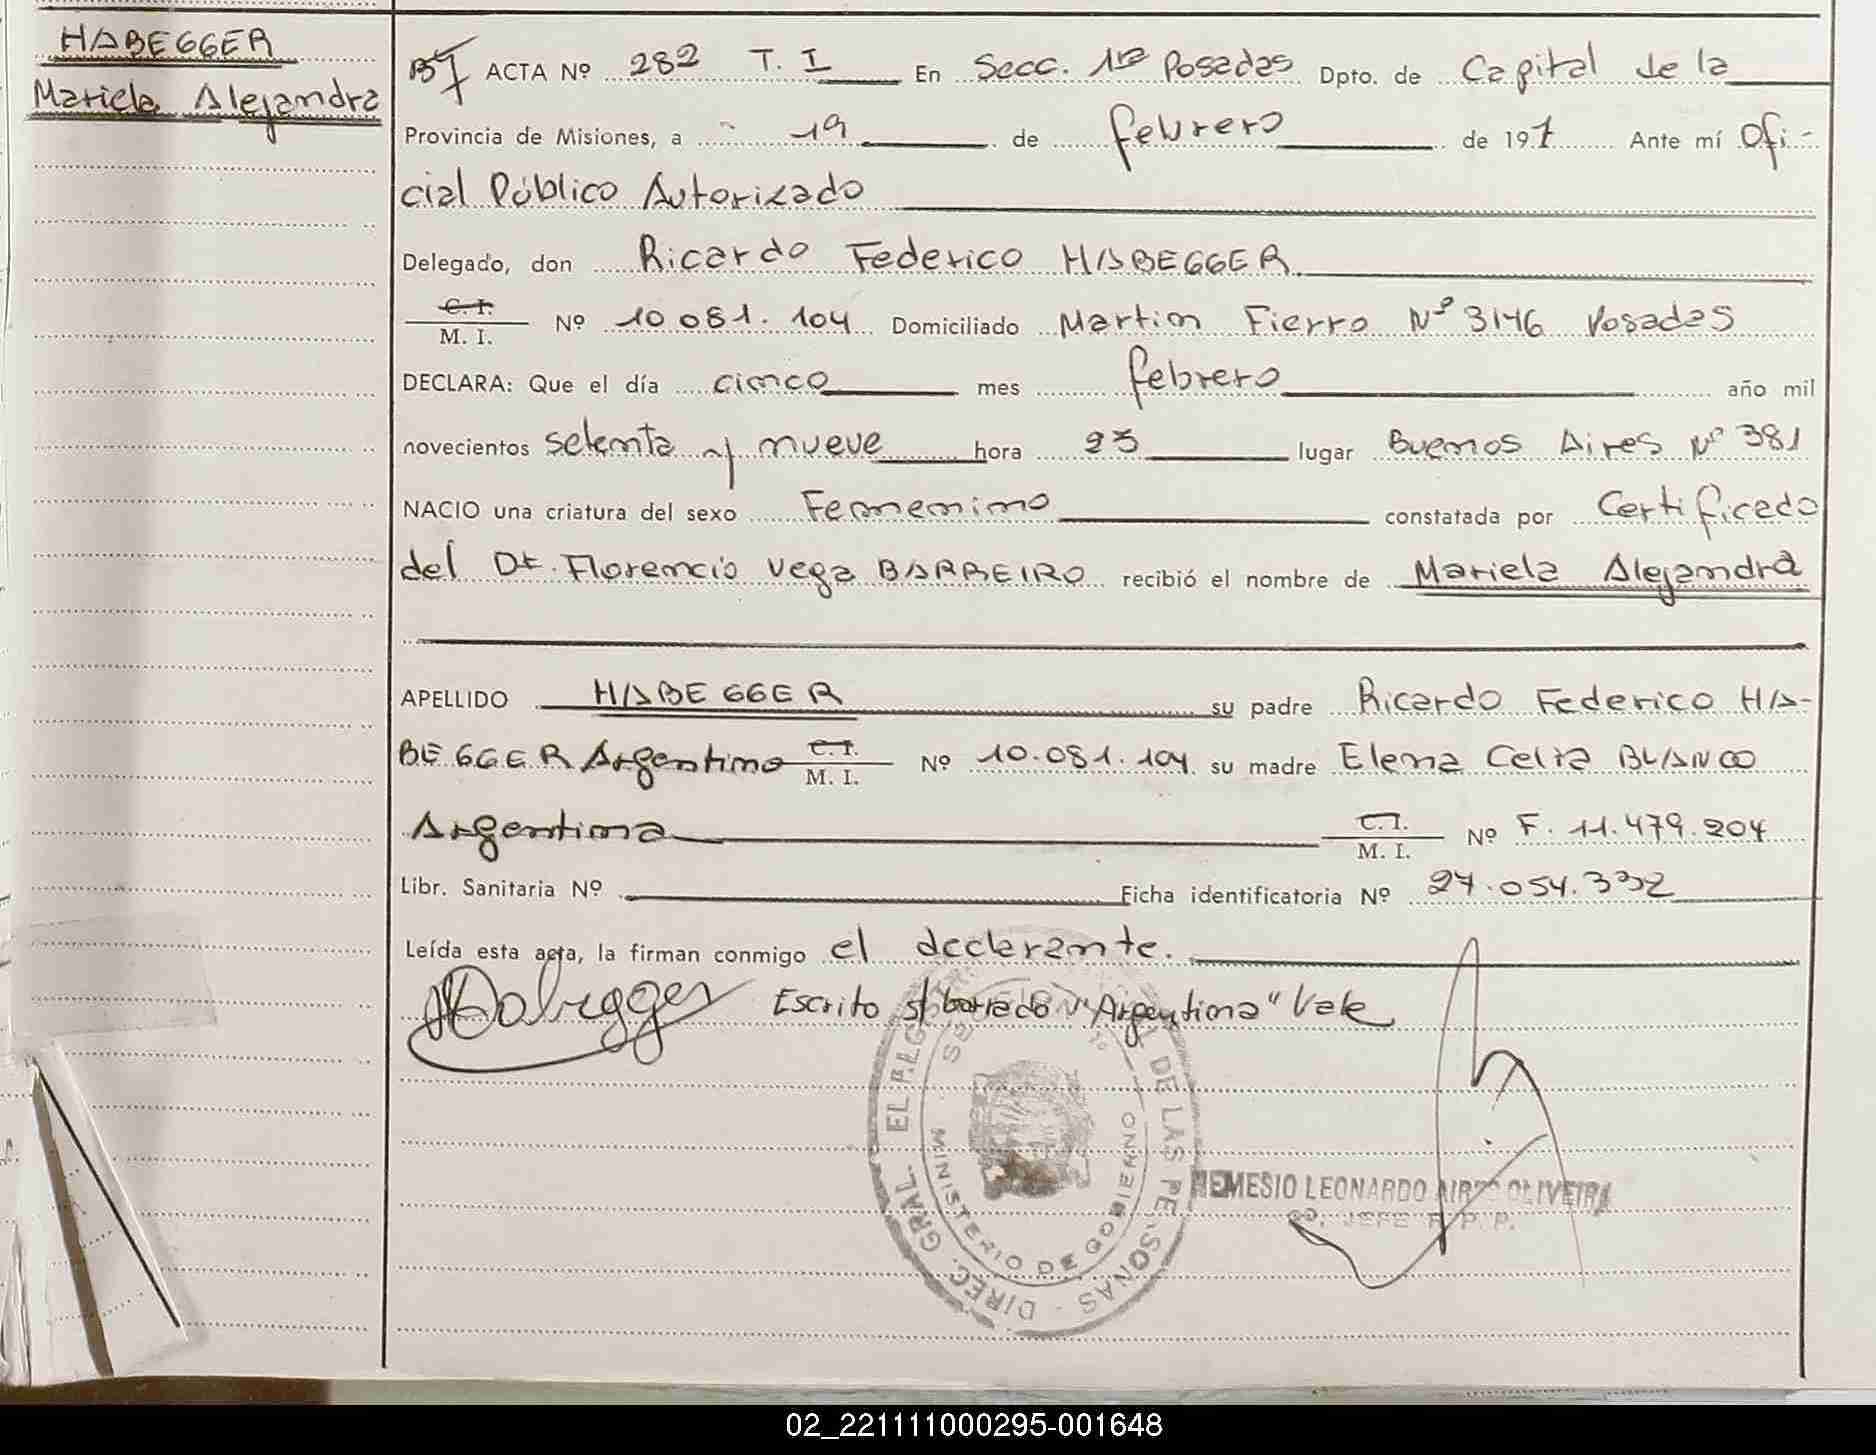 HABEGGER
Mariela Alejandra
ACTA Nº 282 T. I En Secc. 1ra Posadas Dpto. de Capital de la
Provincia de Misiones, a 19 de febrero de 197 Ante mí Ofi-
cial Público Autorizado
Delegado, don Ricardo Federico HABEGGER
C. I.
M. I. Nº 10 081. 104 Domiciliado Martin Fierro Nº 3146 Posadas
DECLARA: Que el día cinco mes febrero año mil
novecientos setenta y nueve hora 23 lugar Buenos Aires Nº 381
NACIO una criatura del sexo Femenino constatada por Certificado
del Dr. Florencio Vega BARREIRO recibió el nombre de Mariela Alejandra
APELLIDO HABEGGER su padre Ricardo Federico HA-
BEGGER Argentino C. I. M. I. Nº 10.081.104 su madre Elena Celia BLANCO
Argentina C. I. M. I. Nº F. 11.479.204
Libr. Sanitaria Nº Ficha identificatoria Nº 27.054.332
Leída esta acta, la firman conmigo el declarante.
Habegger Escrito s/ borrado "Argentina" Vale
DIREC. GRAL. DE LAS PERSONAS
MINISTERIO DE GOBIERNO
NEMESIO LEONARDO AIRES OLIVEIRA
JEFE R. P. P.
02_221111000295-001648